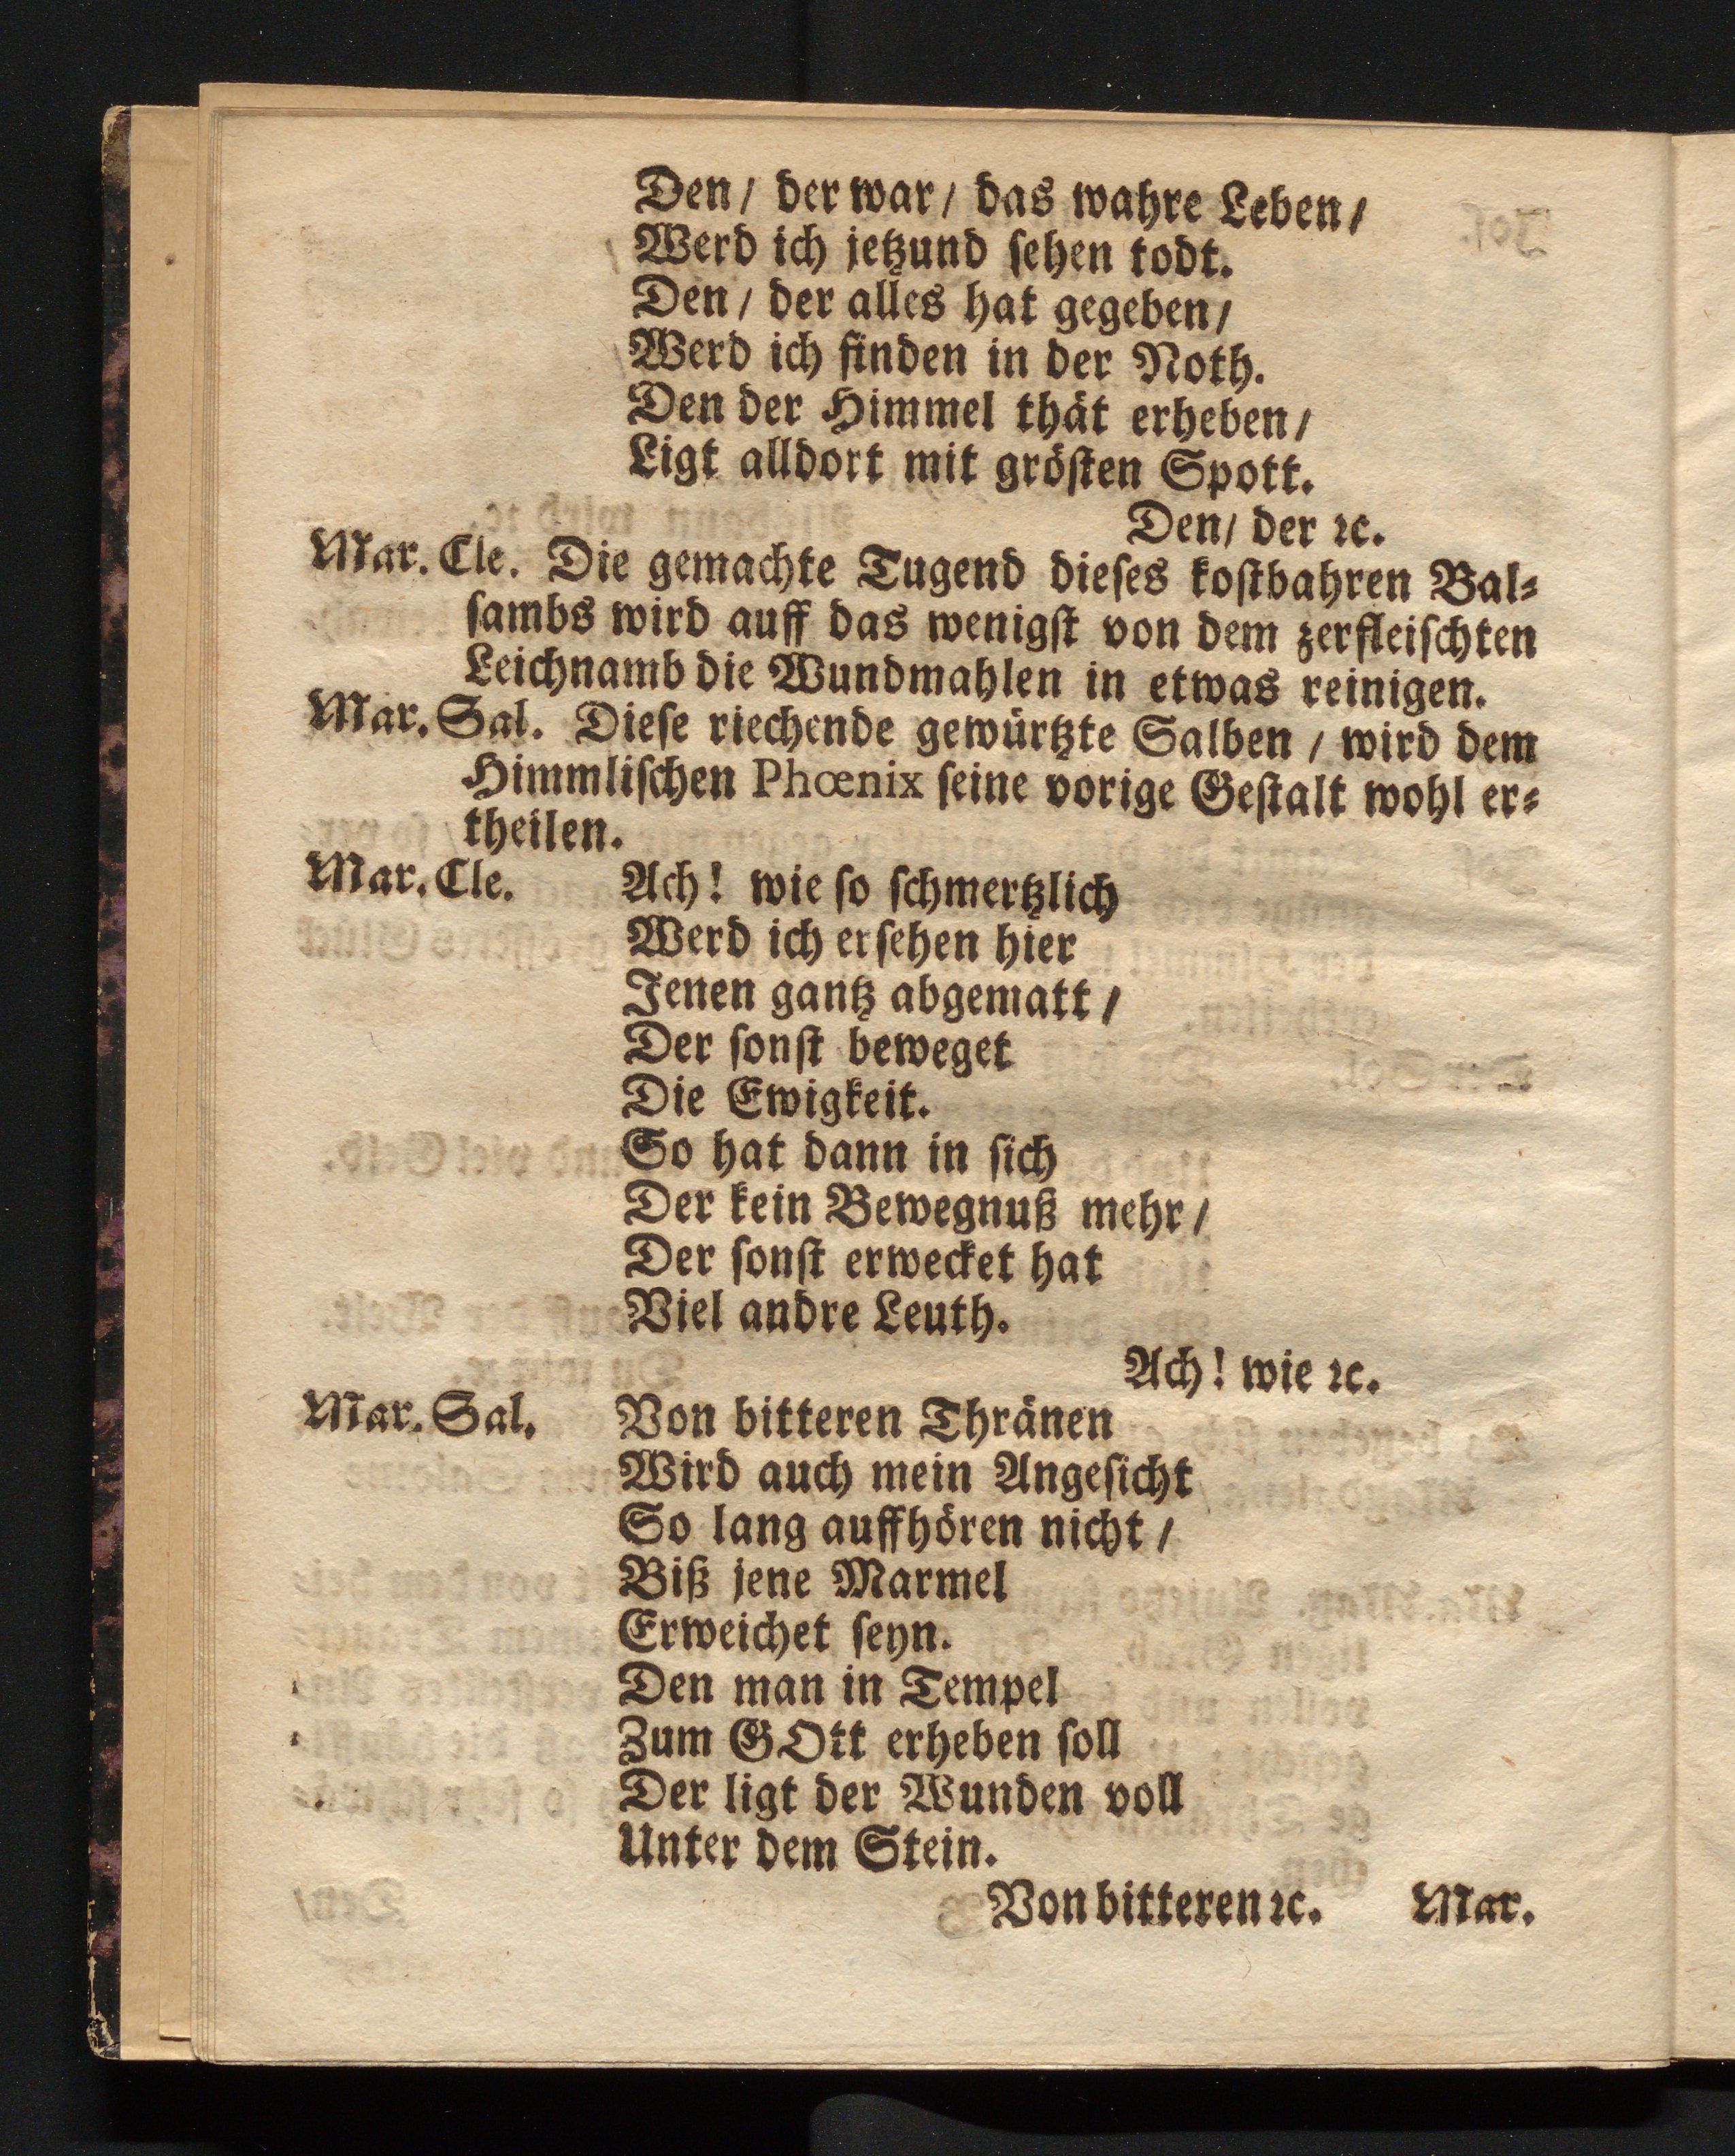 Den/ der war/ das wahre Leben/
Werd ich jetzund sehen todt.
Den/ der alles hat gegeben/
Werd ich finden in der Noth.
Den der Himmel thät erheben/
Ligt alldort mit grösten Spott.
Den/ der ꝛc.
Mar. Cle. Die gemachte Tugend dieses kostbahren Bal-
sambs wird auff das wenigst von dem zerfleischten
Leichnamb die Wundmahlen in etwas reinigen.
Mar. Sal. Diese riechende gewürtzte Salben / wird dem
Himmlischen Phœnix seine vorige Gestalt wohl er-
theilen.
Mar. Cle. Ach! wie so schmertzlich
Werd ich ersehen hier
Jenen gantz abgematt /
Der sonst beweget
Die Ewigkeit.
So hat dann in sich
Der kein Bewegnuß mehr /
Der sonst erwecket hat
Viel andre Leuth.
Ach! wie ꝛc.
Mar. Sal. Von bitteren Thränen
Wird auch mein Angesicht
So lang auffhören nicht /
Biß jene Marmel
Erweichet seyn.
Den man in Tempel
Zum GOtt erheben soll
Der ligt der Wunden voll
Unter dem Stein.
Von bitteren ꝛc. Mar.